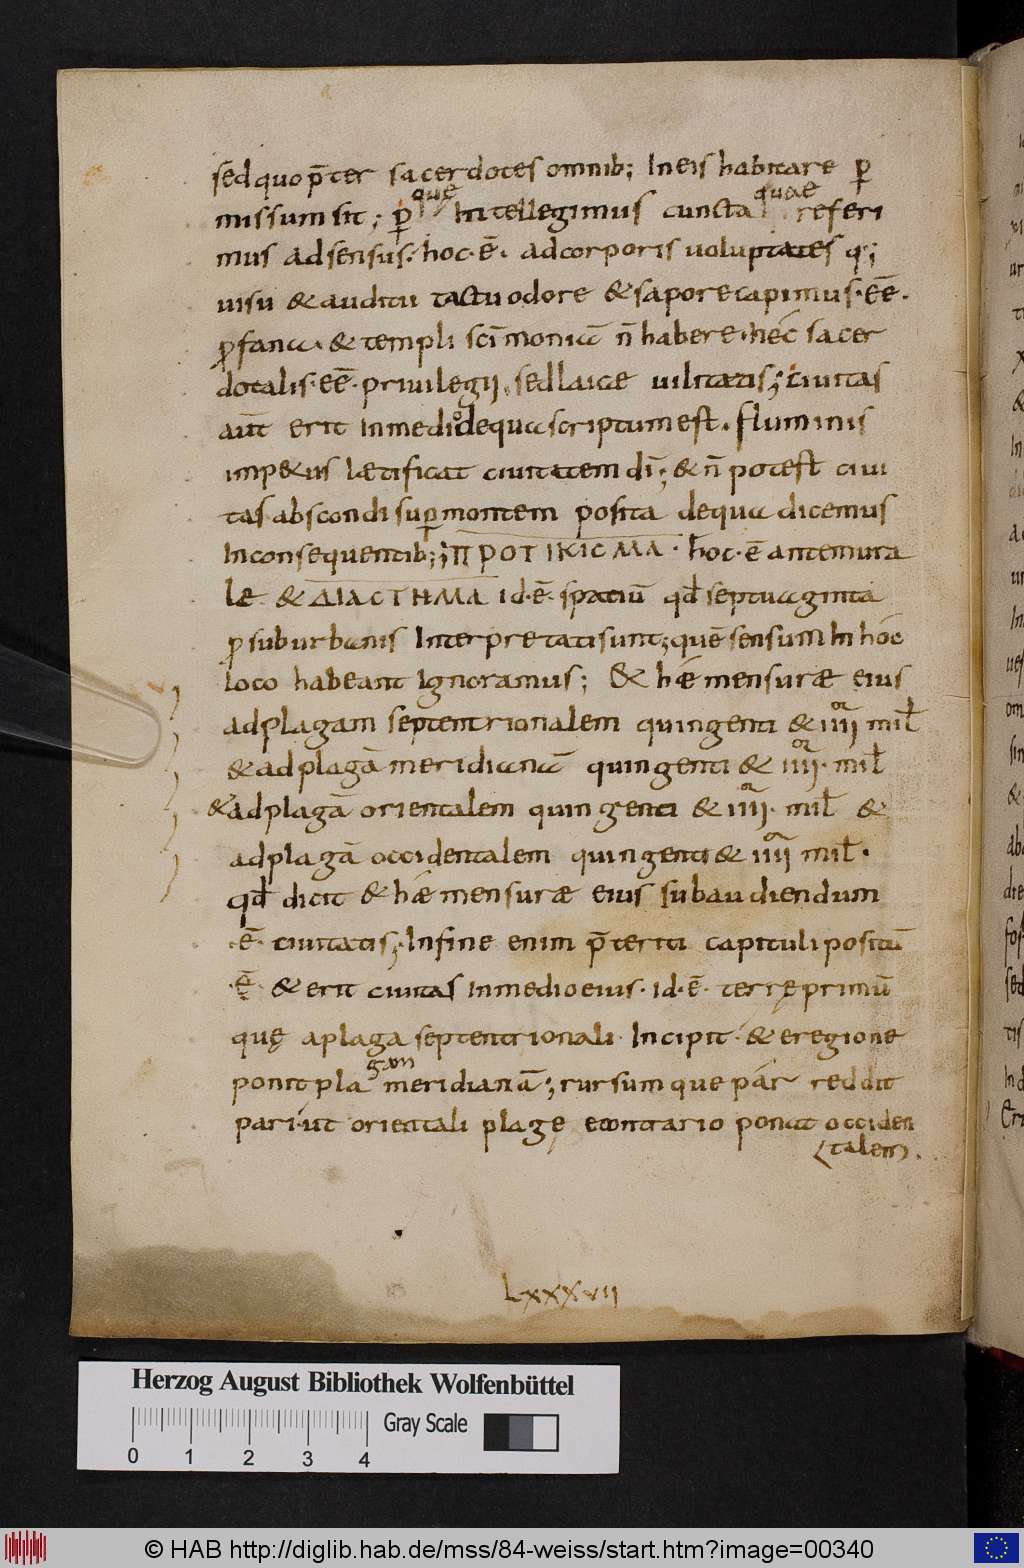 sed quo p̄ter sacerdotes omnib; In eis habitare ꝑ
missum sit; ꝑ quę Intellegimus cuncta quae referi
mus ad sensus. hoc. ē. ad corporis uoluptates q;
uisu & auditu tactu odore & sapore capimus. eē.
ꝓfana. & templi sc̄imoniā n̄ habere. nec sacer
dotalis. eē. priuilegii. sed laice uilitatis; ciuitas
aūt erit In medio de qua scriptum est. fluminis
impetus lætificat ciuitatem dī; & n̄ potest ciui
tas abscondi suꝑ montem posita de qua dicemus
In consequentib; ΠΡΟΤΙΚΙϹΜΑ. hoc. ē antemura
le & ΔΙΑϹΤΗΜΑ id. ē. spatiū qd̄ septuaginta
ꝓ suburbanis Interpretati sunt; quē sensum In hoc
loco habeant Ignoramus; & hæ mensuræ eius
ad plagam septentrionalem quingenti & iiii mil̄
& ad plagā meridianā quingenti & iiii. mil̄
& ad plagā orientalem quingenti & iiii. mil̄ &
ad plagā occidentalem quingenti & iiii mil̄.
qd̄ dicit & hæ mensuræ eius subaudiendum
.ē. ciuitatis; In fine enim p̄teriti capituli positū
.ē. & erit ciuitas In medio eius. id. ē. terrę primū
quę a plaga septentrionali Incipit. & e regione
ponit plagam meridianā; rursumque par reddit
pari. ut orientali plagę e contrario ponat occiden
talem.
LXXXVII
Herzog August Bibliothek Wolfenbüttel
Gray Scale
0 1 2 3 4
© HAB http://diglib.hab.de/mss/84-weiss/start.htm?image=00340